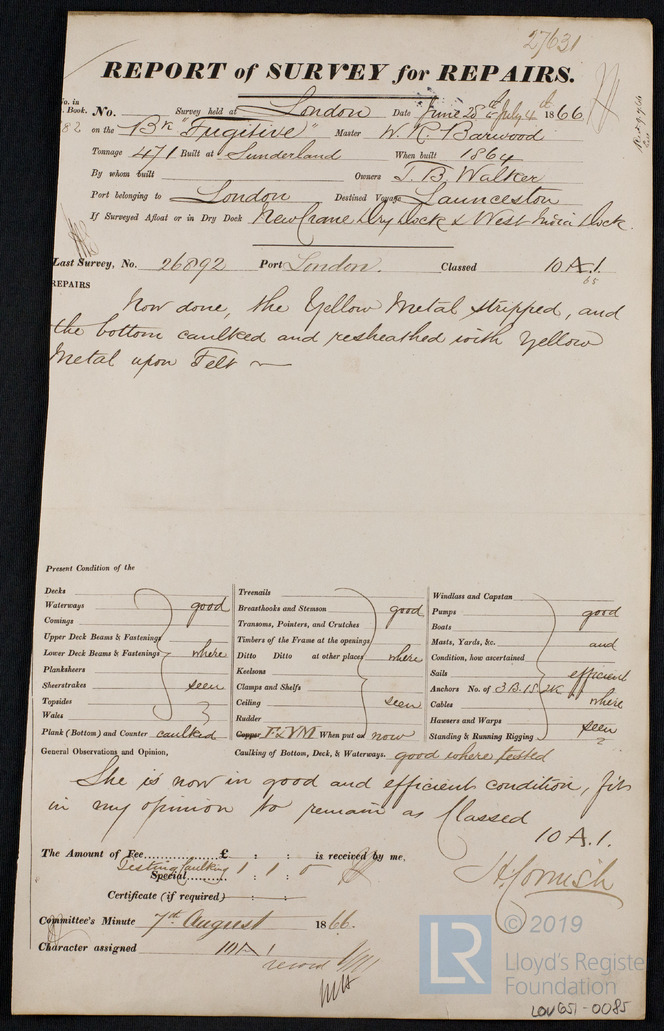 27631
REPORT of SURVEY for REPAIRS.
No. in Book. No. Survey held at London Date June 28th & July 4th 1866
82 on the Bk "Fugitive" Master W. R. Barwood
Tonnage 471 Built at Sunderland When built 1864
By whom built Owners J. B. Walker
Port belonging to London Destined Voyage Launceston
If Surveyed Afloat or in Dry Dock New Crane Dry Dock & West India Dock.
Last Survey, No. 26892 Port London. Classed 10 A.1.
65
REPAIRS
Now done, the Yellow Metal stripped, and
the bottom caulked and resheathed with Yellow
Metal upon Felt
Present Condition of the
Decks
Waterways good
Comings
Upper Deck Beams & Fastenings
Lower Deck Beams & Fastenings where
Planksheers
Sheerstrakes seen
Topsides
Wales
Plank (Bottom) and Counter caulked
Treenails
Breasthooks and Stemson good
Transoms, Pointers, and Crutches
Timbers of the Frame at the openings
Ditto Ditto at other places where
Keelsons
Clamps and Shelfs
Ceiling seen
Rudder
Copper F & YM When put on now
Windlass and Capstan
Pumps good
Boats
Masts, Yards, &c. and
Condition, how ascertained
Sails efficient
Anchors No. of 3 B. 1 S. 2 K
Cables where
Hawsers and Warps
Standing & Running Rigging seen
General Observations and Opinion, Caulking of Bottom, Deck, & Waterways. good where tested
She is now in good and efficient condition, fit
in my opinion to remain as Classed
10 A.1.
The Amount of Fee £ : : is received by me,
Testing Caulking
Special 1 : 1 : 0
H. Cornish
Certificate (if required) : :
Committee's Minute 7th August 1866.
Character assigned 10 A 1
© 2019
LR
Lloyd's Registe
Foundation
LON651-0085